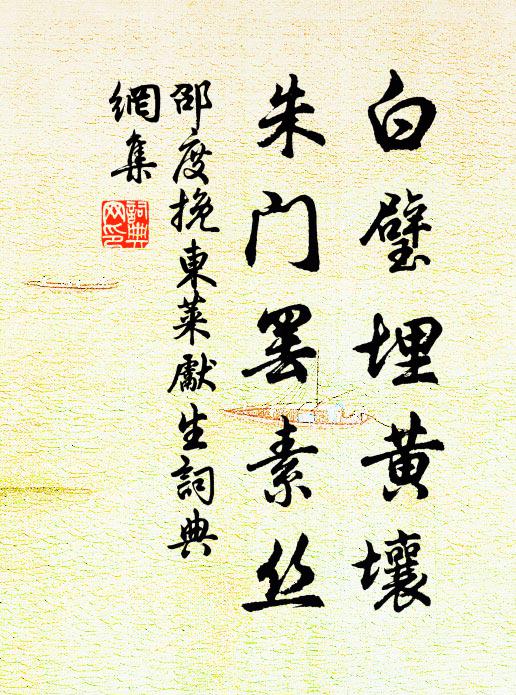 白璧埋黄壤
朱门罢素丝
邵度挽東萊獻生詞典
網集
詞典
网印